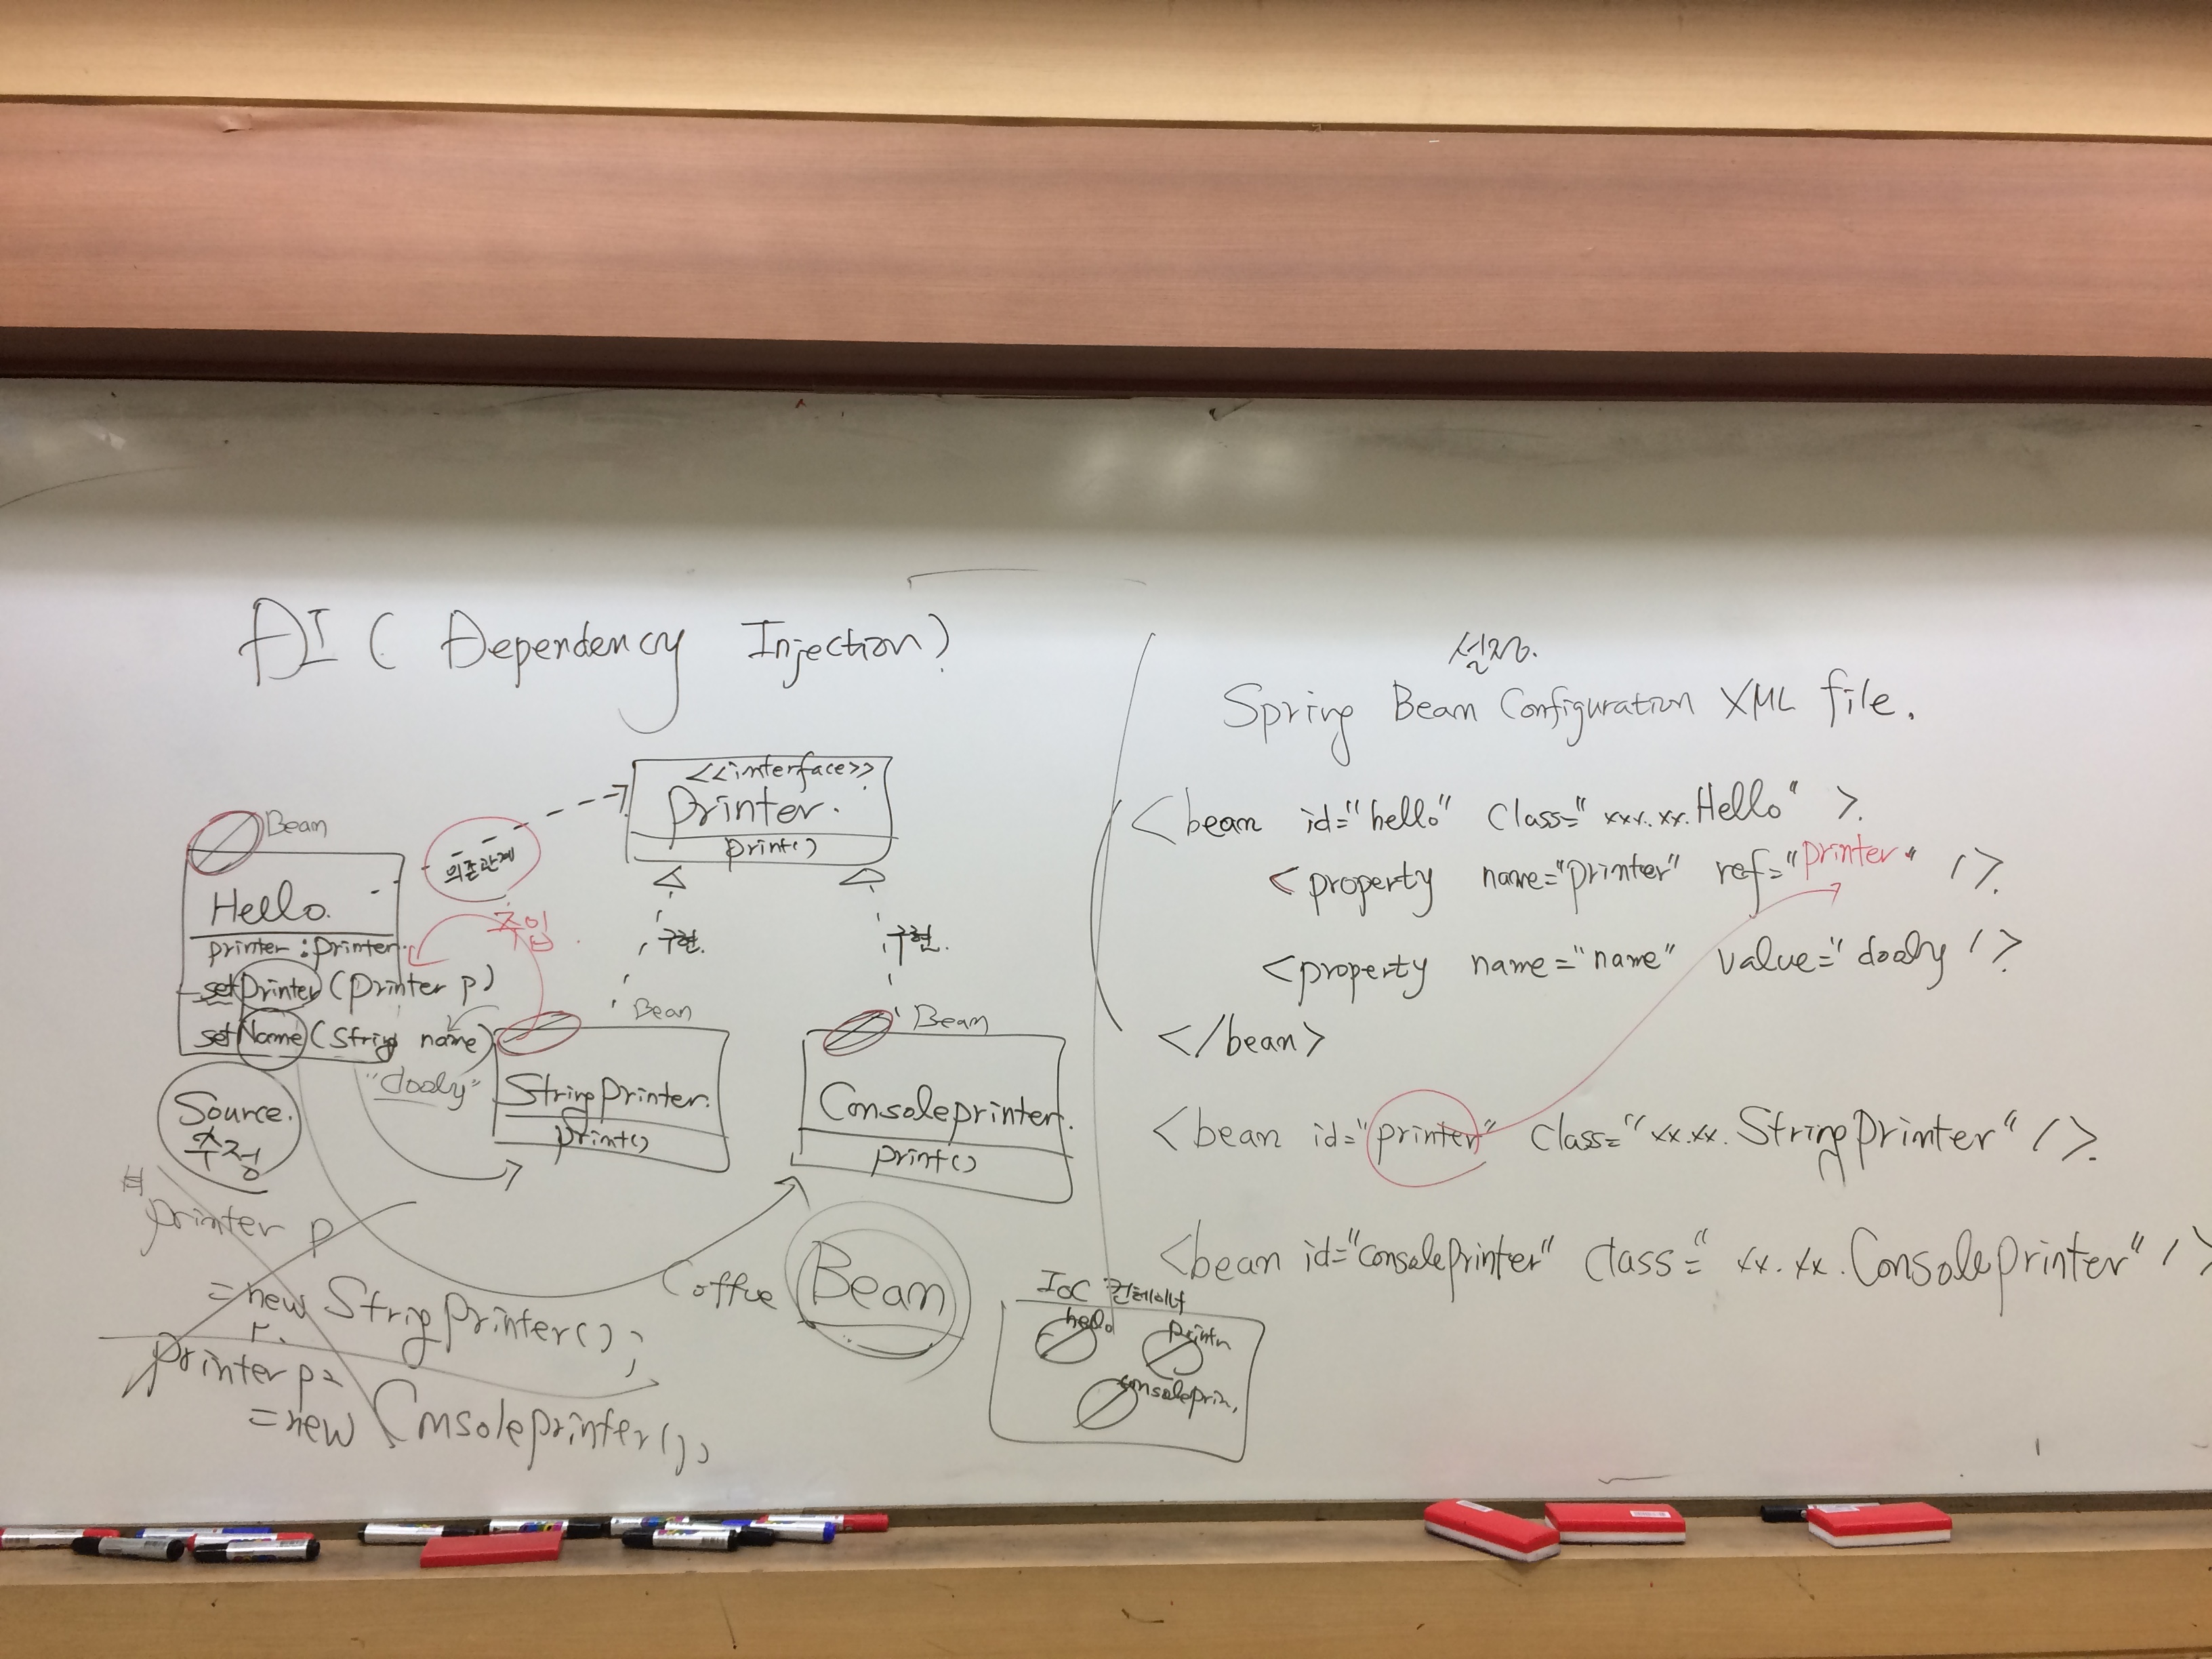 DI ( Dependency Injection )
<<interface>>
Printer.
print()
Bean
의존관계
Hello.
printer : printer
주입.
구현.
구현.
setPrinter (Printer p)
setName (String name)
"dooly"
Bean
StringPrinter.
print()
Bean
ConsolePrinter.
print()
Source.
수정
printer p
= new StringPrinter();
printer p2
= new ConsolePrinter();
Coffee Bean
IoC 컨테이너
hello
printer
consoleprin.
설정.
Spring Bean Configuration XML file.
<bean id="hello" class="xxx.xx.Hello" >
<property name="printer" ref="printer" />
<property name="name" value="dooly />
</bean>
<bean id="printer" class="xx.xx.StringPrinter" />
<bean id="consolePrinter" class="xx.xx.ConsolePrinter" />